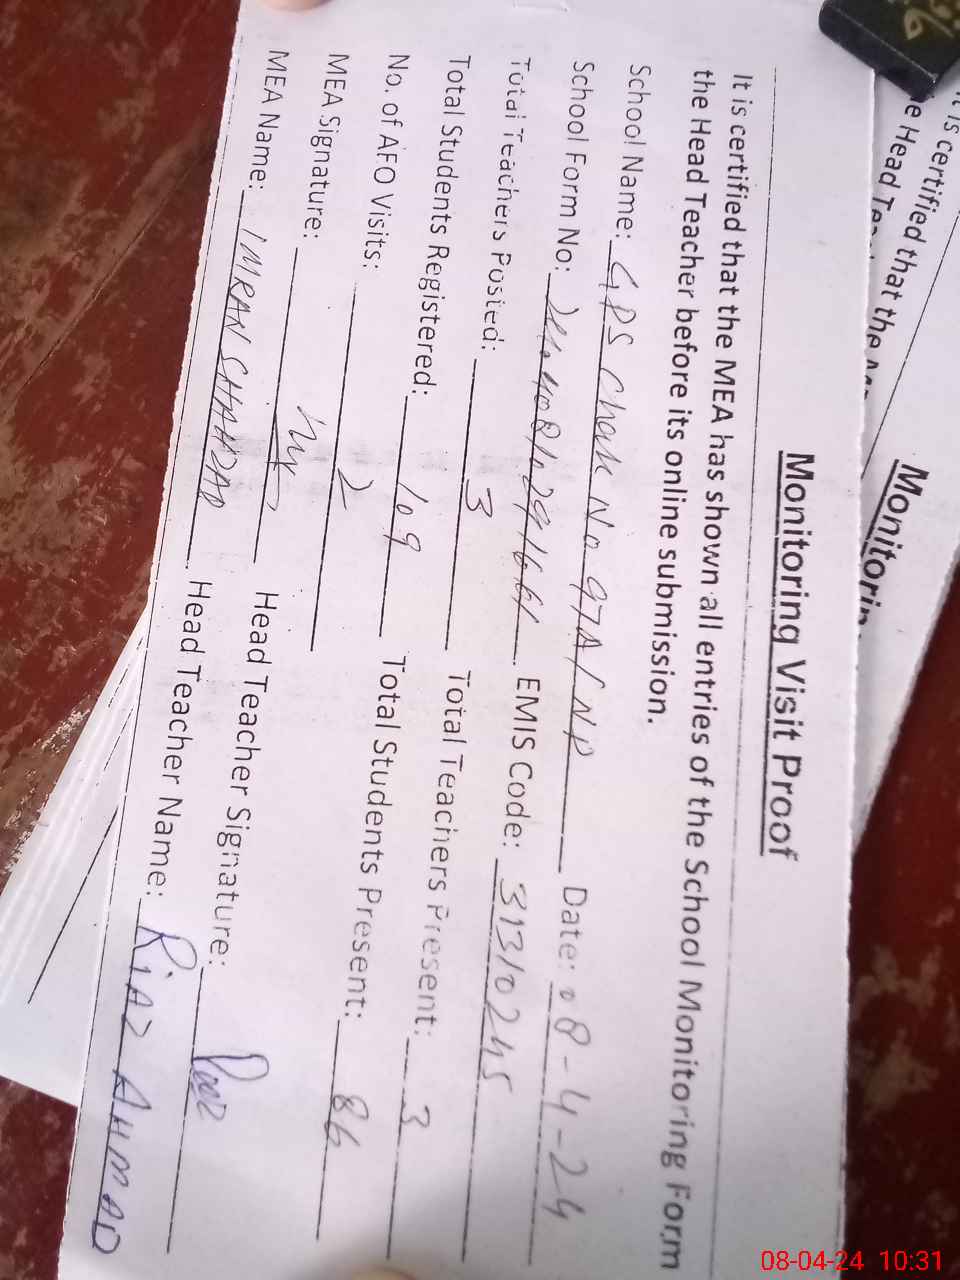 Monitoring Visit Proof
It is certified that the MEA has shown all entries of the School Monitoring Form
the Head Teacher before its online submission.
School Name: GPS Chak No 97A/NP Date: 08-4-24
School Form No: EMIS Code: 31310245
Total Teachers Posted: 3 Total Teachers Present: 3
Total Students Registered: 109 Total Students Present: 86
No. of AEO Visits: 2
MEA Signature: Head Teacher Signature:
MEA Name: IMRAN SHAHZAD Head Teacher Name: RiAZ AHMAD
Monitorin
It is certified that the
the Head
08-04-24 10:31